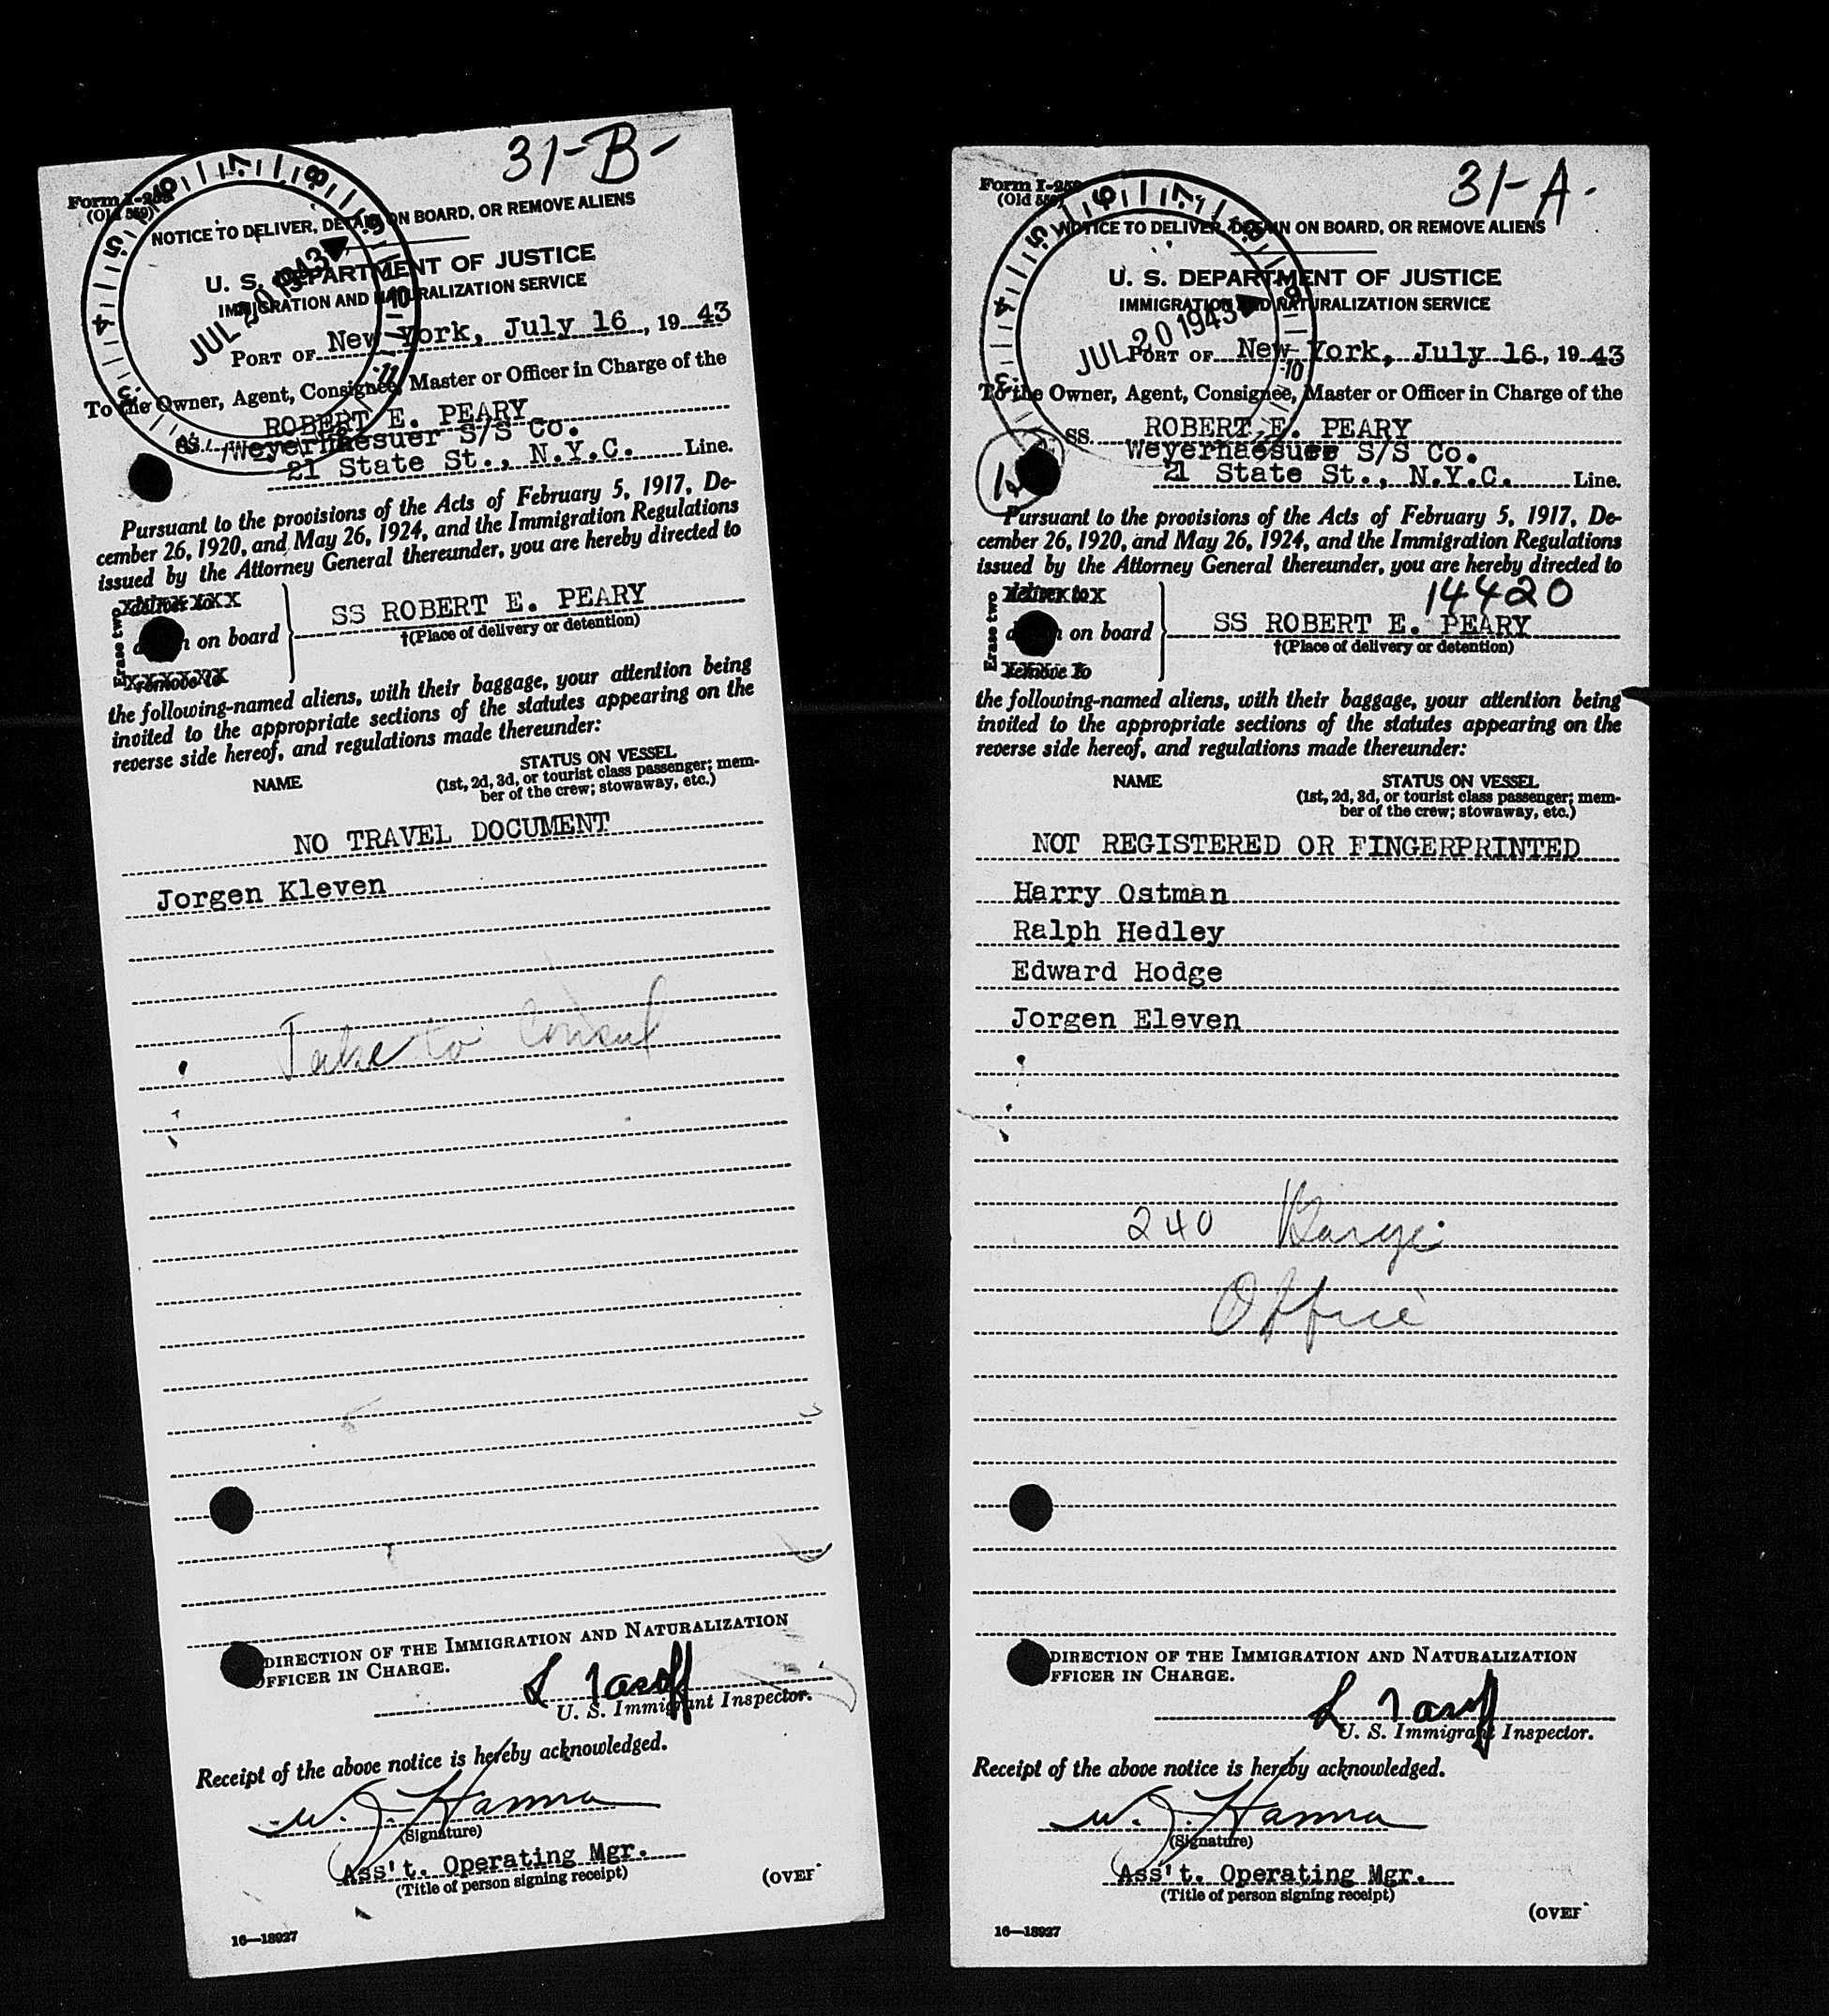 31-B-
Form I-259
(Old 559)
NOTICE TO DELIVER, DETAIN ON BOARD, OR REMOVE ALIENS
U. S. DEPARTMENT OF JUSTICE
IMMIGRATION AND NATURALIZATION SERVICE
JUL 20 1943
PORT OF New York, July 16, 1943
To the Owner, Agent, Consignee, Master or Officer in Charge of the
SS. ROBERT E. PEARY
Weyerhaesuer S/S Co.
21 State St., N.Y.C. Line.
Pursuant to the provisions of the Acts of February 5, 1917, De-
cember 26, 1920, and May 26, 1924, and the Immigration Regulations
issued by the Attorney General thereunder, you are hereby directed to
Erase two
deliver to
on board
remove to
SS ROBERT E. PEARY
†(Place of delivery or detention)
the following-named aliens, with their baggage, your attention being
invited to the appropriate sections of the statutes appearing on the
reverse side hereof, and regulations made thereunder:
NAME
STATUS ON VESSEL
(1st, 2d, 3d, or tourist class passenger; mem-
ber of the crew; stowaway, etc.)
NO TRAVEL DOCUMENT
Jorgen Kleven
Take to Consul
DIRECTION OF THE IMMIGRATION AND NATURALIZATION
OFFICER IN CHARGE.
U. S. Immigrant Inspector.
Receipt of the above notice is hereby acknowledged.
W. J. Hanna
(Signature)
Ass't. Operating Mgr.
(Title of person signing receipt)
(OVER
16—18927
31-A-
Form I-259
(Old 559)
NOTICE TO DELIVER, DETAIN ON BOARD, OR REMOVE ALIENS
U. S. DEPARTMENT OF JUSTICE
IMMIGRATION AND NATURALIZATION SERVICE
JUL 20 1943
PORT OF New York, July 16, 1943
To the Owner, Agent, Consignee, Master or Officer in Charge of the
SS. ROBERT E. PEARY
Weyerhaesuer S/S Co.
21 State St., N.Y.C. Line.
Pursuant to the provisions of the Acts of February 5, 1917, De-
cember 26, 1920, and May 26, 1924, and the Immigration Regulations
issued by the Attorney General thereunder, you are hereby directed to
14420
Erase two
deliver to
on board
remove to
SS ROBERT E. PEARY
†(Place of delivery or detention)
the following-named aliens, with their baggage, your attention being
invited to the appropriate sections of the statutes appearing on the
reverse side hereof, and regulations made thereunder:
NAME
STATUS ON VESSEL
(1st, 2d, 3d, or tourist class passenger; mem-
ber of the crew; stowaway, etc.)
NOT REGISTERED OR FINGERPRINTED
Harry Ostman
Ralph Hedley
Edward Hodge
Jorgen Eleven
240 Barge
Office
DIRECTION OF THE IMMIGRATION AND NATURALIZATION
OFFICER IN CHARGE.
U. S. Immigrant Inspector.
Receipt of the above notice is hereby acknowledged.
W. J. Hanna
(Signature)
Ass't. Operating Mgr.
(Title of person signing receipt)
(OVER
16—18927